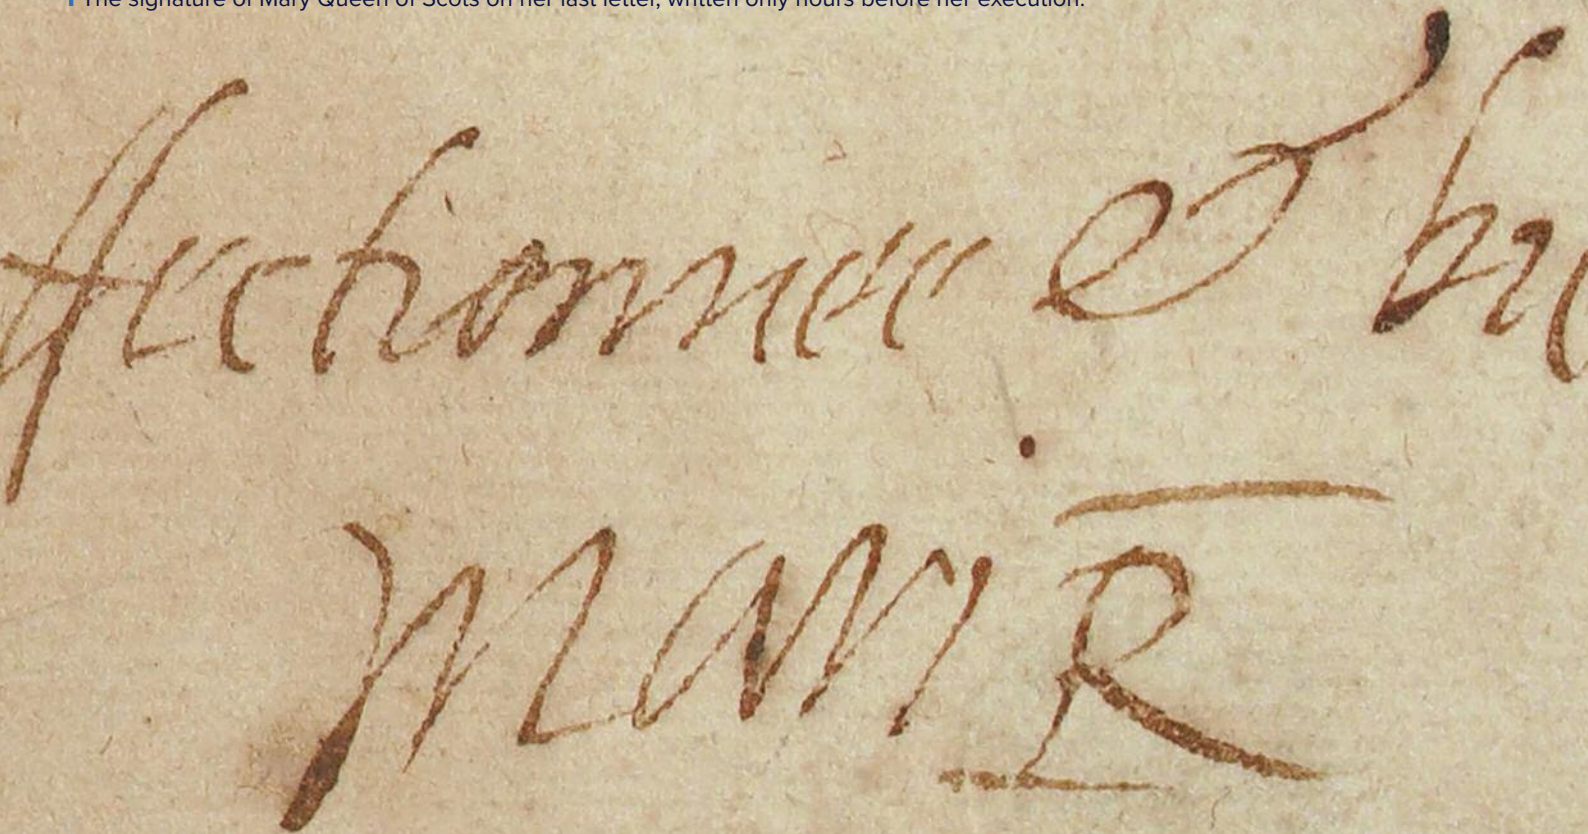 The signature of Mary Queen of Scots on her last letter, written only hours before her execution.
ffectionnee & bie
Mari R